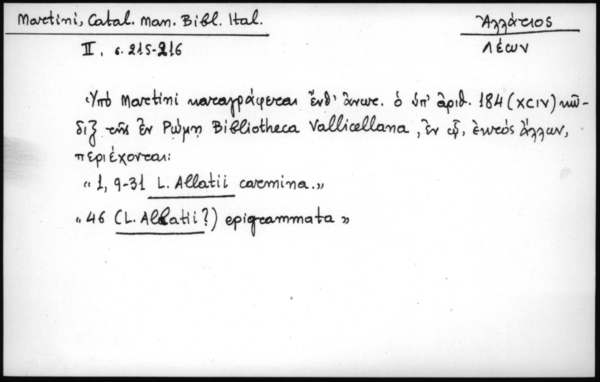 Martini, Catal. Man. Bibl. Ital.
Ἀλλάτιος
II. σ. 215-216
Λέων
Ὑπὸ Martini καταγράφεται ἔνθ' ἄνωτ. ὁ ὑπ' ἀριθ. 184 (XCIV) κῶ-
διξ τῆς ἐν Ρώμῃ Bibliotheca Vallicellana, ἐν ᾧ, ἐκτὸς ἄλλων,
περιέχονται:
« 1, 9-31 L. Allatii carmina.»
« 46 (L. Allatii?) epigrammata »